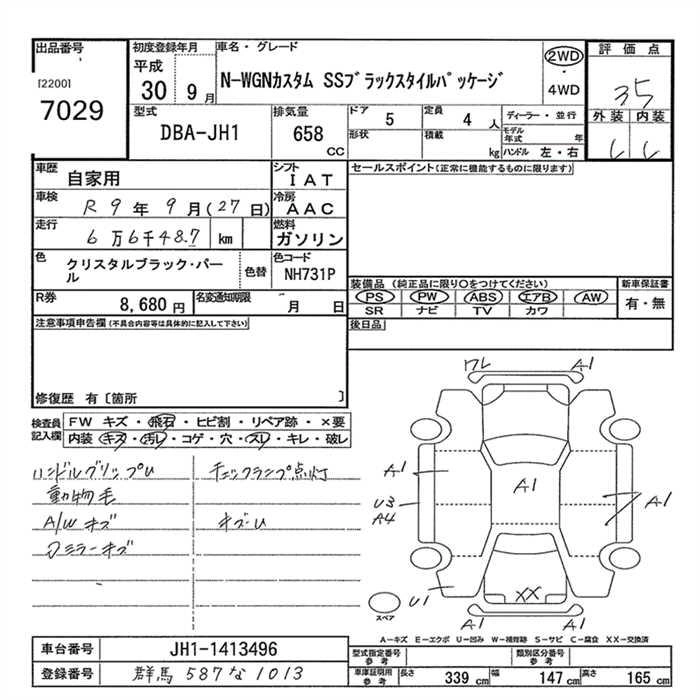 出品番号
[2200]
7029
初度登録年月
平成
30 9 月
車名・グレード
N-WGNカスタム SSブラックスタイルパッケージ
2WD
・
4WD
評価点
35
外装 内装
型式
DBA-JH1
排気量
658
CC
ドア 5
形状
定員 4 人
積載 kg
ディーラー・並行
モデル年式 年
ハンドル 左・右
車歴
自家用
シフト
IAT
車検
R 9 年 9 月(27 日)
冷房
AAC
走行
6 万 6 千 487 km
燃料
ガソリン
色
クリスタルブラック・パール
色替
色コード
NH731P
R券
8,680 円
名変通知期限
月 日
セールスポイント(正常に機能するものに限ります)
装備品(純正品に限り○をつけてください)
PS PW ABS エアB AW
SR ナビ TV カワ
新車保証書
有・無
後日品
注意事項申告欄(不具合内容等は具体的に記入して下さい)
修復歴 有〔箇所 〕
検査員記入欄
FW キズ・飛石・ヒビ割・リペア跡・×要
内装・キズ・汚レ・コゲ・穴・スレ・キレ・破レ
ハンドルグリップU
動物毛
A/W キズ
Dミラーキズ
チェックランプ点灯
キズ・U
ワレ
A1
A1
A1
U3
A4
A1
U1
XX
A1
A1
スペア
A-キズ E-エクボ U-凹み W-補修跡 S-サビ C-腐食 XX-交換済
車台番号
JH1-1413496
登録番号
群馬 587 な 1013
型式指定番号
参考
類別区分番号
参考
車庫証明用
参考
長さ 339 cm
幅 147 cm
高さ 165 cm